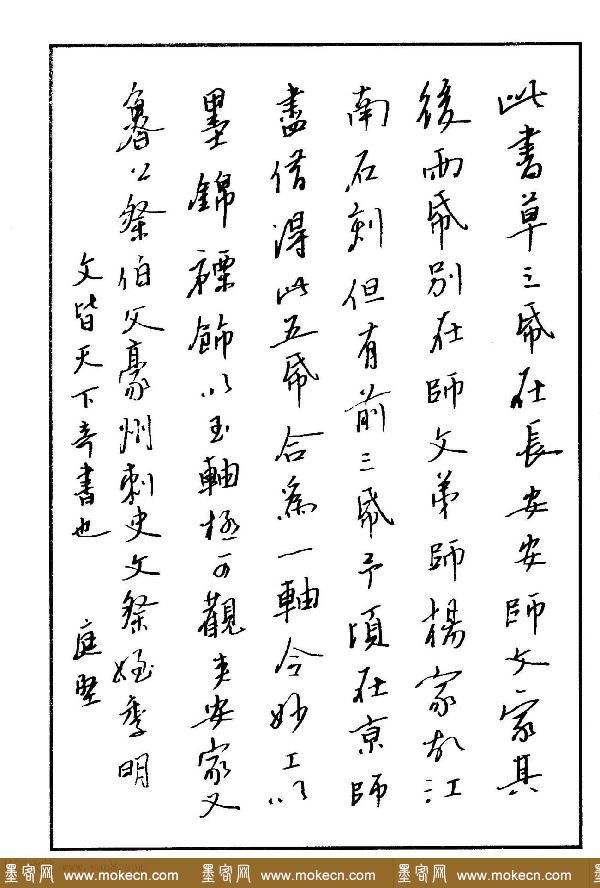 此書草三紙在長安安師文家其
後兩紙別在師文弟師楊家故江
南石刻但有前三紙予頃在京師
盡借得此五紙合為一軸令妙工以
墨錦裱飾以玉軸極可觀安家又
魯公祭伯父豪州刺史文祭姪季明
文皆天下奇書也 庭堅
墨客网 www.mokecn.com 墨客网 www.mokecn.com 墨客网 www.mokecn.com